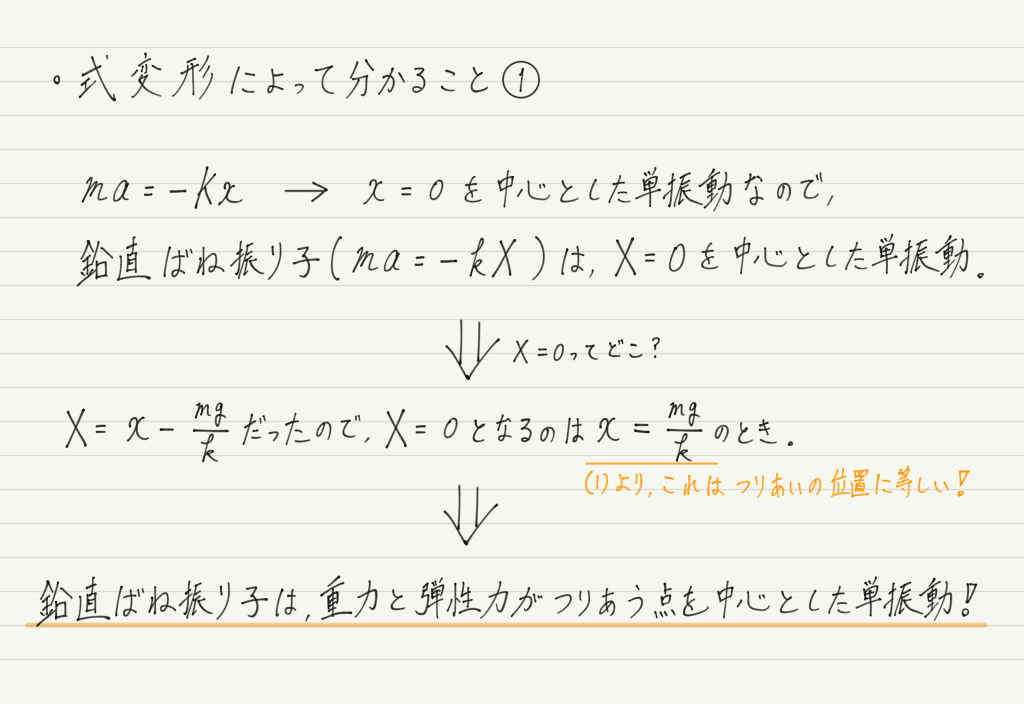 • 式変形によって分かること①
ma = -kx → x = 0 を中心とした単振動なので,
鉛直ばね振り子(ma = -kX)は, X = 0 を中心とした単振動.
⇓ X = 0 ってどこ?
X = x - mg/k だったので, X = 0 となるのは x = mg/k のとき.
(1)より, これはつりあいの位置に等しい!
⇓
鉛直ばね振り子は, 重力と弾性力がつりあう点を中心とした単振動!